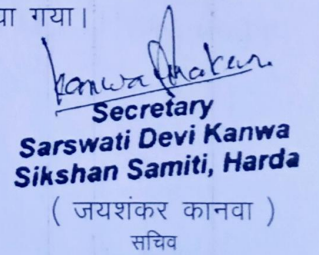 गया।
Secretary
Sarswati Devi Kanwa
Sikshan Samiti, Harda
( जयशंकर कानवा )
सचिव